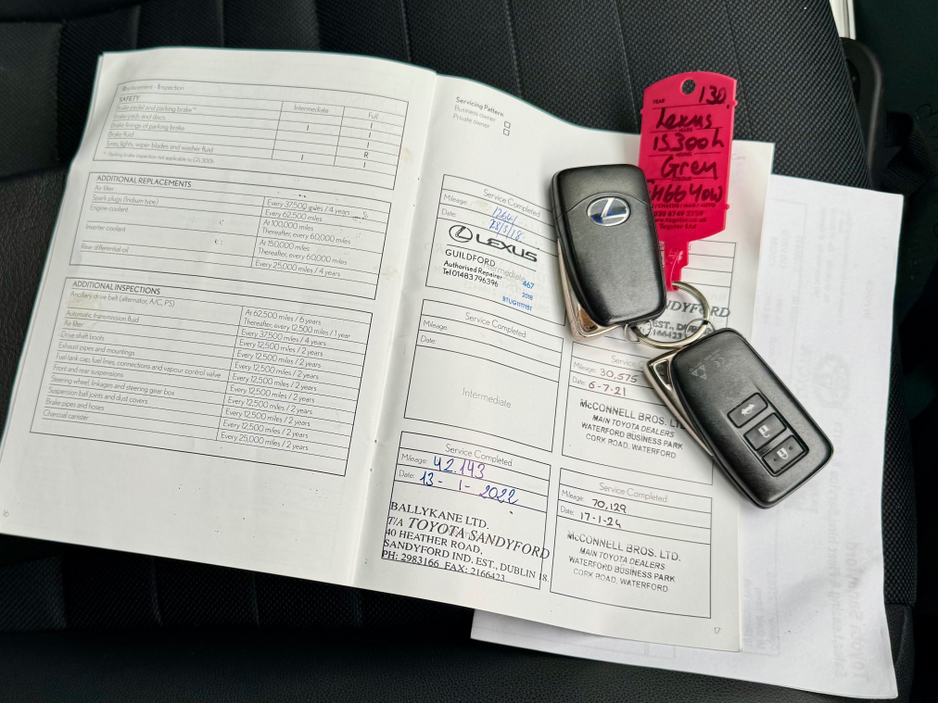 Replacement - Inspection
SAFETY
Intermediate
Full
Brake pedal and parking brake*
I
Brake pads and discs
I
Brake linings of parking brake
I
I
Brake fluid
R
Tyres, lights, wiper blades and washer fluid
I
I
* Parking brake inspection not applicable to GS 300h
ADDITIONAL REPLACEMENTS
Air filter
Every 37,500 miles / 4 years
Spark plugs (Iridium type)
Every 62,500 miles
Engine coolant
At 100,000 miles
Thereafter, every 60,000 miles
Inverter coolant
At 150,000 miles
Thereafter, every 60,000 miles
Rear differential oil
Every 25,000 miles / 4 years
ADDITIONAL INSPECTIONS
Ancillary drive belt (alternator, A/C, PS)
At 62,500 / 6 years
Thereafter, every 12,500 miles / 1 year
Automatic transmission fluid
Every 37,500 miles / 4 years
Air filter
Every 12,500 miles / 2 years
Drive shaft boots
Every 12,500 miles / 2 years
Exhaust pipes and mountings
Every 12,500 miles / 2 years
Fuel tank cap, fuel lines, connections and vapour control valve
Every 12,500 miles / 2 years
Front and rear suspensions
Every 12,500 miles / 2 years
Steering wheel, linkages and steering gear box
Every 12,500 miles / 2 years
Suspension ball joints and dust covers
Every 12,500 miles / 2 years
Brake pipes and hoses
Every 12,500 miles / 2 years
Charcoal canister
Every 25,000 miles / 2 years
16
Servicing Pattern
Business owner
Private owner
Service Completed
Mileage:
Date:
LEXUS
GUILDFORD
Authorised Repairer
Tel 01483 796396
Intermediate
467
2018
Service Completed
Mileage:
Date:
Intermediate
Service Completed
Mileage: 42.143
Date: 13 - 1 - 2022
BALLYKANE LTD.
T/A TOYOTA SANDYFORD
40 HEATHER ROAD,
SANDYFORD IND. EST., DUBLIN 18.
PH: 2983166 FAX: 2166423
EST., DUB
166423
Service
Mileage: 30,575
Date: 6-7-21
McCONNELL BROS. LTD.
MAIN TOYOTA DEALERS
WATERFORD BUSINESS PARK
CORK ROAD, WATERFORD
Service Completed
Mileage: 70,129
Date: 17-1-24
McCONNELL BROS. LTD.
MAIN TOYOTA DEALERS
WATERFORD BUSINESS PARK
CORK ROAD, WATERFORD
17
YEAR
130
Lexus
IS300h
Grey